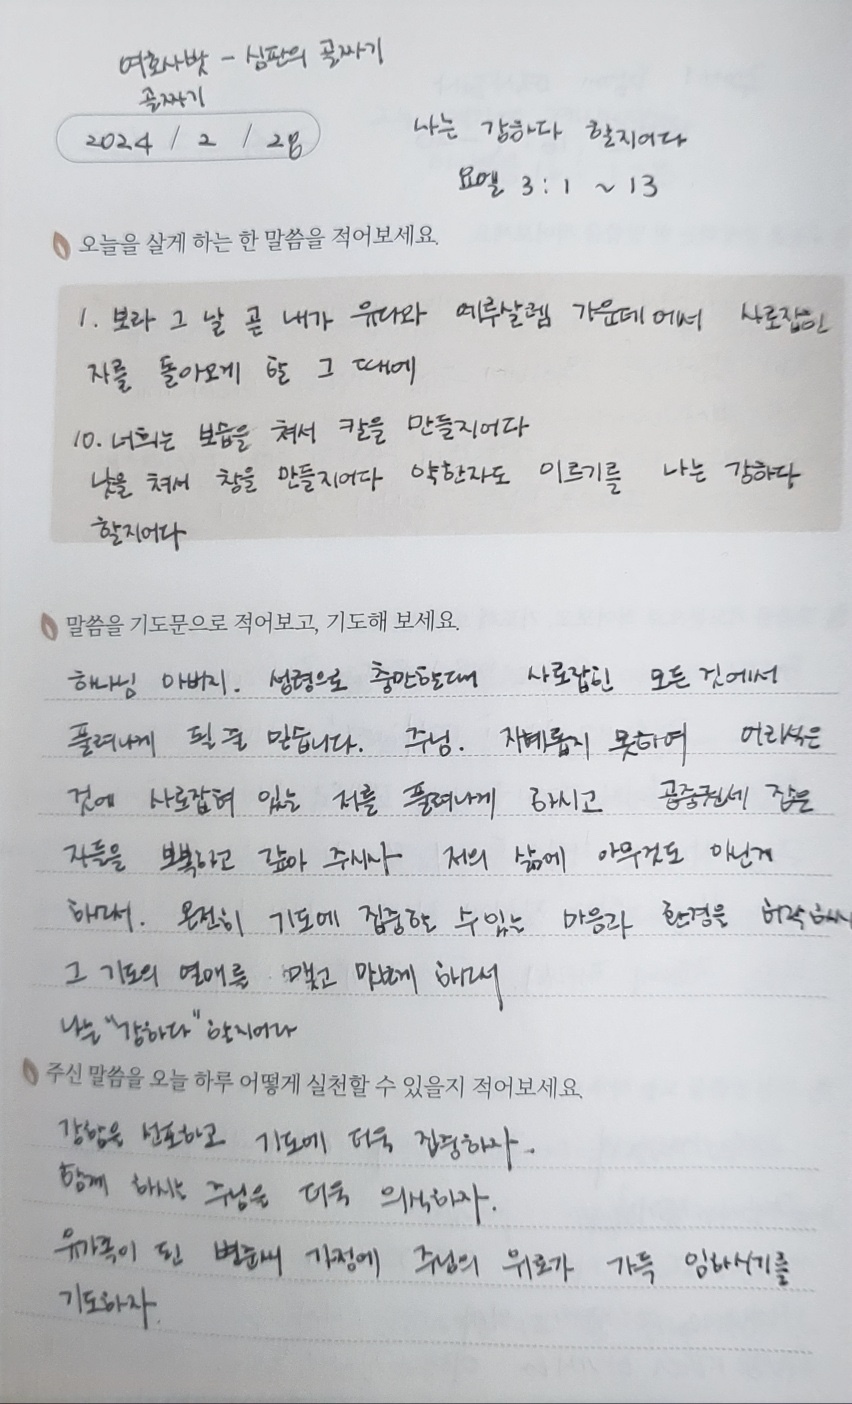 여호사밧 - 심판의 골짜기
골짜기
2024 / 2 / 28
나는 강하다 할지어다
요엘 3 : 1 ~ 13
오늘을 살게 하는 한 말씀을 적어보세요.
1. 보라 그 날 곧 내가 유다와 예루살렘 가운데에서 사로잡힌
자를 돌아오게 할 그 때에
10. 너희는 보습을 쳐서 칼을 만들지어다
낫을 쳐서 창을 만들지어다 약한자도 이르기를 나는 강하다
할지어다
말씀을 기도문으로 적어보고, 기도해 보세요.
하나님 아버지. 성령으로 충만할때 사로잡힌 모든 것에서
풀려나게 될 줄 믿습니다. 주님. 지혜롭지 못하여 어리석은
것에 사로잡혀 있는 저를 풀려나게 하시고 공중권세 잡은
자들을 보복하고 갚아 주시사 저의 삶에 아무것도 아닌게
하소서. 온전히 기도에 집중할 수 있는 마음과 환경을 허락하시
그 기도의 열매를 맺고 맛보게 하소서
나는 "강하다" 할지어다
주신 말씀을 오늘 하루 어떻게 실천할 수 있을지 적어보세요.
강함을 선포하고 기도에 더욱 집중하자.
함께 하시는 주님을 더욱 의식하자.
유가족이 된 가정에 주님의 위로가 가득 임하시기를
기도하자.